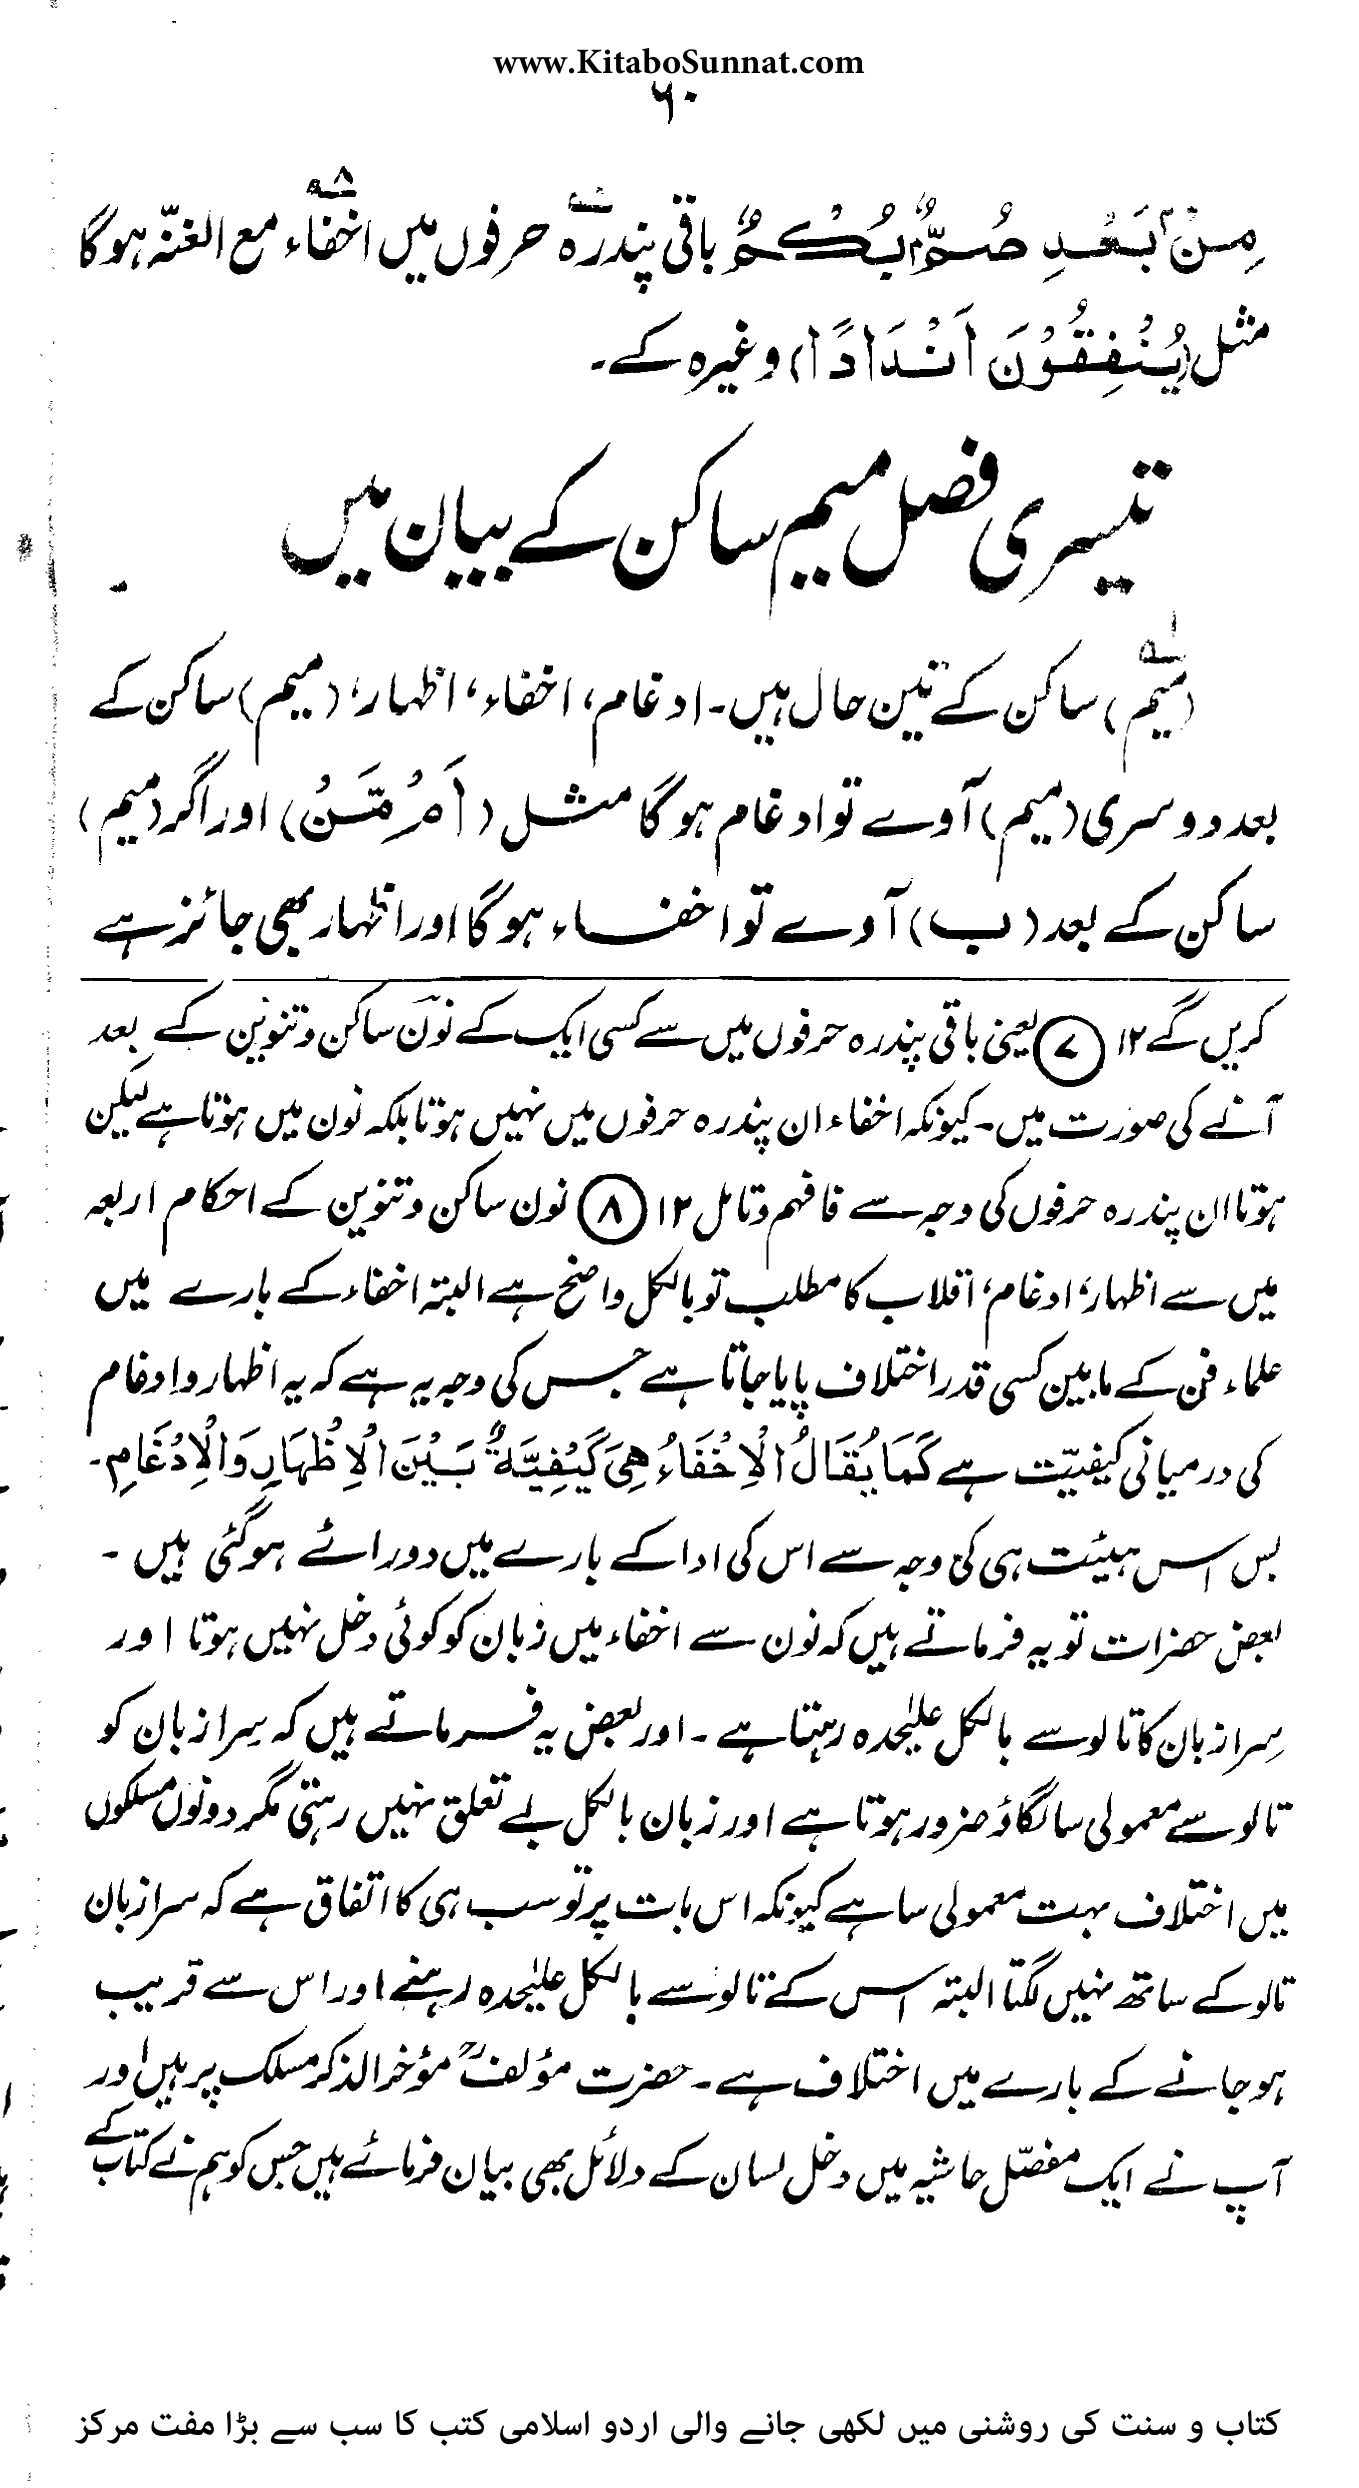 www.KitaboSunnat.com
۶۰
مِنْۢ بَعْدِ صُمٌّۢ بُكْمٌ باقی پندرہ حرفوں میں اخفاء۸ مع الغنّہ ہوگا
مثل (يُنْفِقُوْنَ اَنْدَادًا) وغیرہ کے۔
تیسری فصل میم ساکن کے بیان میں
(میم)۱ ساکن کے تین حال ہیں۔ ادغام، اخفاء، اظہار، (میم) ساکن کے
بعد دوسری (میم) آوے تو ادغام ہوگا مثل (اَمْ مَّنْ) اور اگر (میم)
ساکن کے بعد (ب) آوے تو اخفاء ہوگا اور اظہار بھی جائز ہے
کریں گے ۱۲ ⑦ یعنی باقی پندرہ حرفوں میں سے کسی ایک کے نون ساکن و تنوین کے بعد
آنے کی صورت میں۔ کیونکہ اخفاء ان پندرہ حرفوں میں نہیں ہوتا بلکہ نون میں ہوتا ہے لیکن
ہوتا ان پندرہ حرفوں کی وجہ سے فافہم وتامل ۱۲ ⑧ نون ساکن و تنوین کے احکام اربعہ
میں سے اظہار، ادغام، اقلاب کا مطلب تو بالکل واضح ہے البتہ اخفاء کے بارے میں
علماء فن کے مابین کسی قدر اختلاف پایا جاتا ہے جس کی وجہ یہ ہے کہ یہ اظہار و ادغام
کی درمیانی کیفیّت ہے كَمَا يُقَالُ الْاِخْفَاءُ هِيَ كَيْفِيَّةٌ بَيْنَ الْاِظْهَارِ وَالْاِدْغَامِ۔
بس اس ہیئت ہی کی وجہ سے اس کی ادا کے بارے میں دو رائے ہوگئی ہیں۔
بعض حضرات تو یہ فرماتے ہیں کہ نون سے اخفاء میں زبان کو کوئی دخل نہیں ہوتا اور
سِرا زبان کا تالو سے بالکل علیٰحدہ رہتا ہے۔ اور بعض یہ فرماتے ہیں کہ سِرا زبان کو
تالو سے معمولی سا لگاؤ ضرور ہوتا ہے اور زبان بالکل بے تعلق نہیں رہتی مگر دونوں مسلکوں
میں اختلاف بہت معمولی سا ہے کیونکہ اس بات پر تو سب ہی کا اتفاق ہے کہ سرا زبان
تالو کے ساتھ نہیں لگتا البتہ اس کے تالو سے بالکل علیٰحدہ رہنے اور اس سے قریب
ہوجانے کے بارے میں اختلاف ہے۔ حضرت مؤلفؒ مؤخر الذکر مسلک پر ہیں اور
آپ نے ایک مفصّل حاشیہ میں دخل لسان کے دلائل بھی بیان فرمائے ہیں جس کو ہم نے کتاب کے
کتاب و سنت کی روشنی میں لکھی جانے والی اردو اسلامی کتب کا سب سے بڑا مفت مرکز